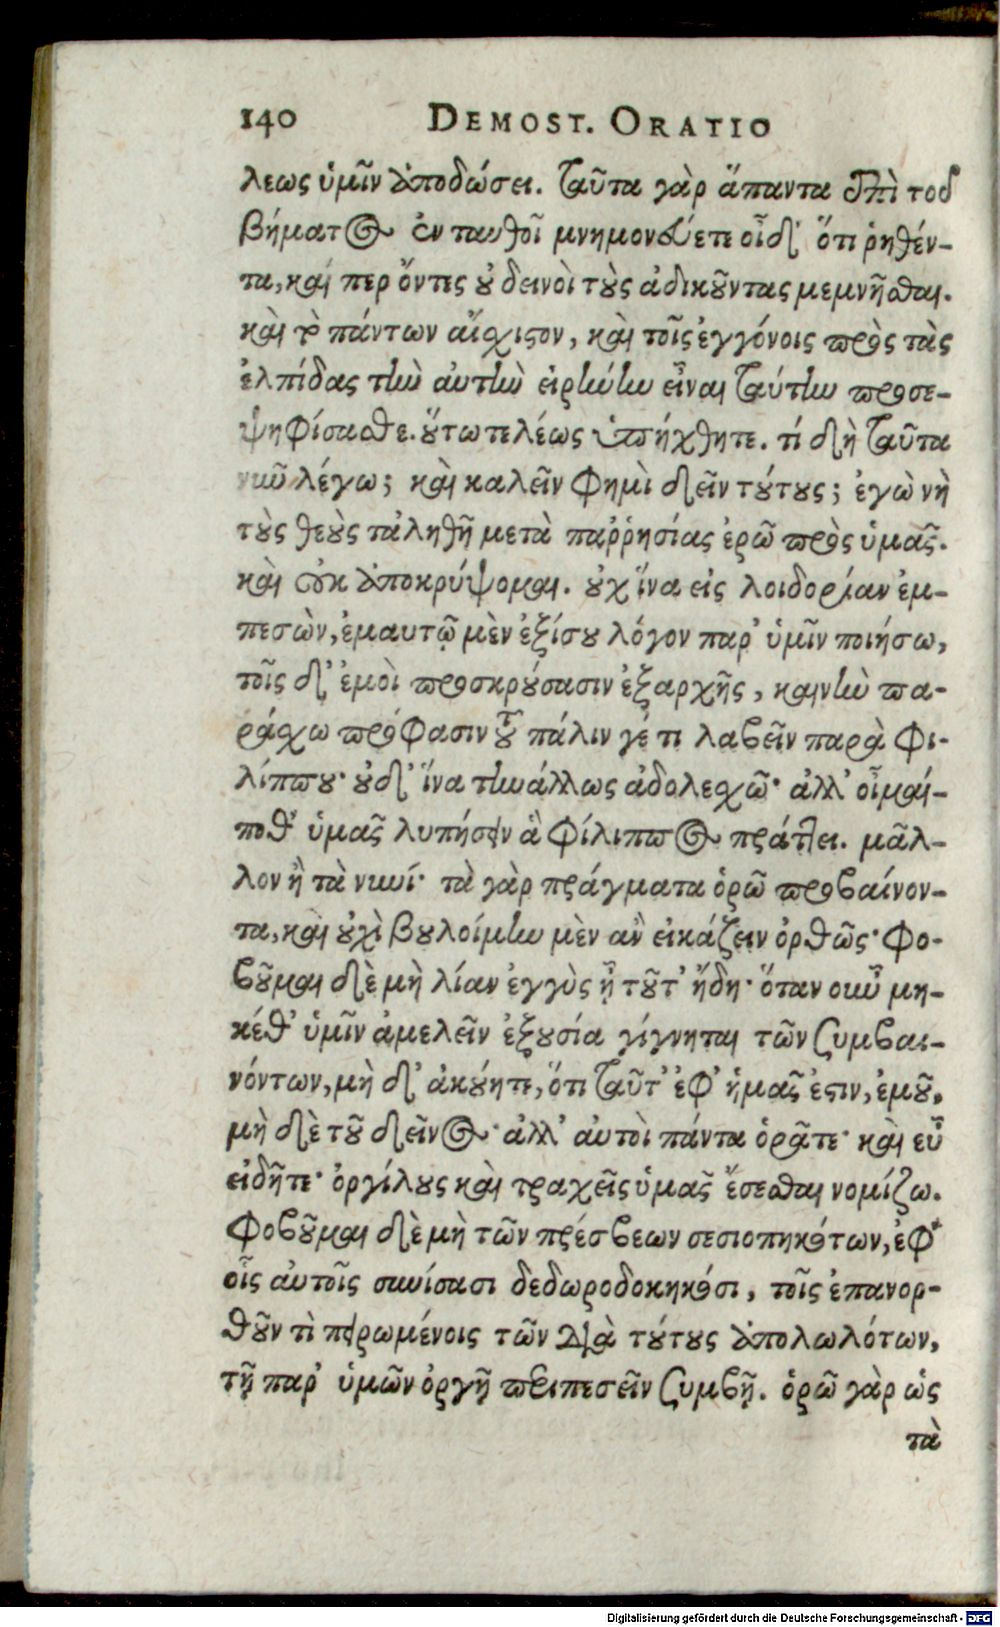 140 DEMOST. ORATIO
λεως ὑμῖν ἀποδώσει. ταῦτα γὰρ ἅπαντα ἐπὶ τοῦ
βήματος ἐνταυθοῖ μνημονεύετε οἶδ' ὅτι ῥηθέν-
τα, καί περ ὄντες οὐ δεινοὶ τοὺς ἀδικοῦντας μεμνῆσθαι.
καὶ τὸ πάντων αἴσχιστον, καὶ τοῖς ἐγγόνοις πρὸς τὰς
ἐλπίδας τὴν αὐτὴν εἰρήνην εἶναι ταύτην προσε-
ψηφίσασθε. οὕτω τελέως ὑπήχθητε. τί δὴ ταῦτα
νῦν λέγω; καὶ καλεῖν φημὶ δεῖν τούτους; ἐγὼ νὴ
τοὺς θεοὺς τἀληθῆ μετὰ παῤῥησίας ἐρῶ πρὸς ὑμᾶς.
καὶ οὐκ ἀποκρύψομαι. οὐχ ἵνα εἰς λοιδορίαν ἐμ-
πεσὼν, ἐμαυτῷ μὲν ἐξίσου λόγον παρ' ὑμῖν ποιήσω,
τοῖς δ' ἐμοὶ προσκρούσασιν ἐξαρχῆς, καινὴν πα-
ράσχω πρόφασιν τοῦ πάλιν γέ τι λαβεῖν παρὰ Φι-
λίππου· οὐδ' ἵνα τηνάλλως ἀδολεσχῶ· ἀλλ' οἶμαί-
ποθ' ὑμᾶς λυπήσειν ἃ Φίλιππος πράττει. μᾶλ-
λον ἢ τὰ νυνί· τὰ γὰρ πράγματα ὁρῶ προβαίνον-
τα, καὶ οὐχὶ βουλοίμην μὲν ἂν εἰκάζειν ὀρθῶς· φο-
βοῦμαι δὲ μὴ λίαν ἐγγὺς ᾖ τοῦτ' ἤδη· ὅταν οὖν μη-
κέθ' ὑμῖν ἀμελεῖν ἐξουσία γίγνηται τῶν συμβαι-
νόντων, μὴ δ' ἀκούητε, ὅτι ταῦτ' ἐφ' ἡμᾶς ἐστιν, ἐμοῦ,
μὴ δὲ τοῦ δεῖνος· ἀλλ' αὐτοὶ πάντα ὁρᾶτε· καὶ εὖ
εἰδῆτε· ὀργίλους καὶ τραχεῖς ὑμᾶς ἔσεσθαι νομίζω.
φοβοῦμαι δὲ μὴ τῶν πρέσβεων σεσιωπηκότων, ἐφ'
οἷς αὑτοῖς συνίσασι δεδωροδοκηκόσι, τοῖς ἐπανορ-
θοῦν τὶ πειρωμένοις τῶν διὰ τούτους ἀπολωλότων,
τῇ παρ' ὑμῶν ὀργῇ περιπεσεῖν συμβῇ. ὁρῶ γὰρ ὡς
τὰ
Digitalisierung gefördert durch die Deutsche Forschungsgemeinschaft - DFG